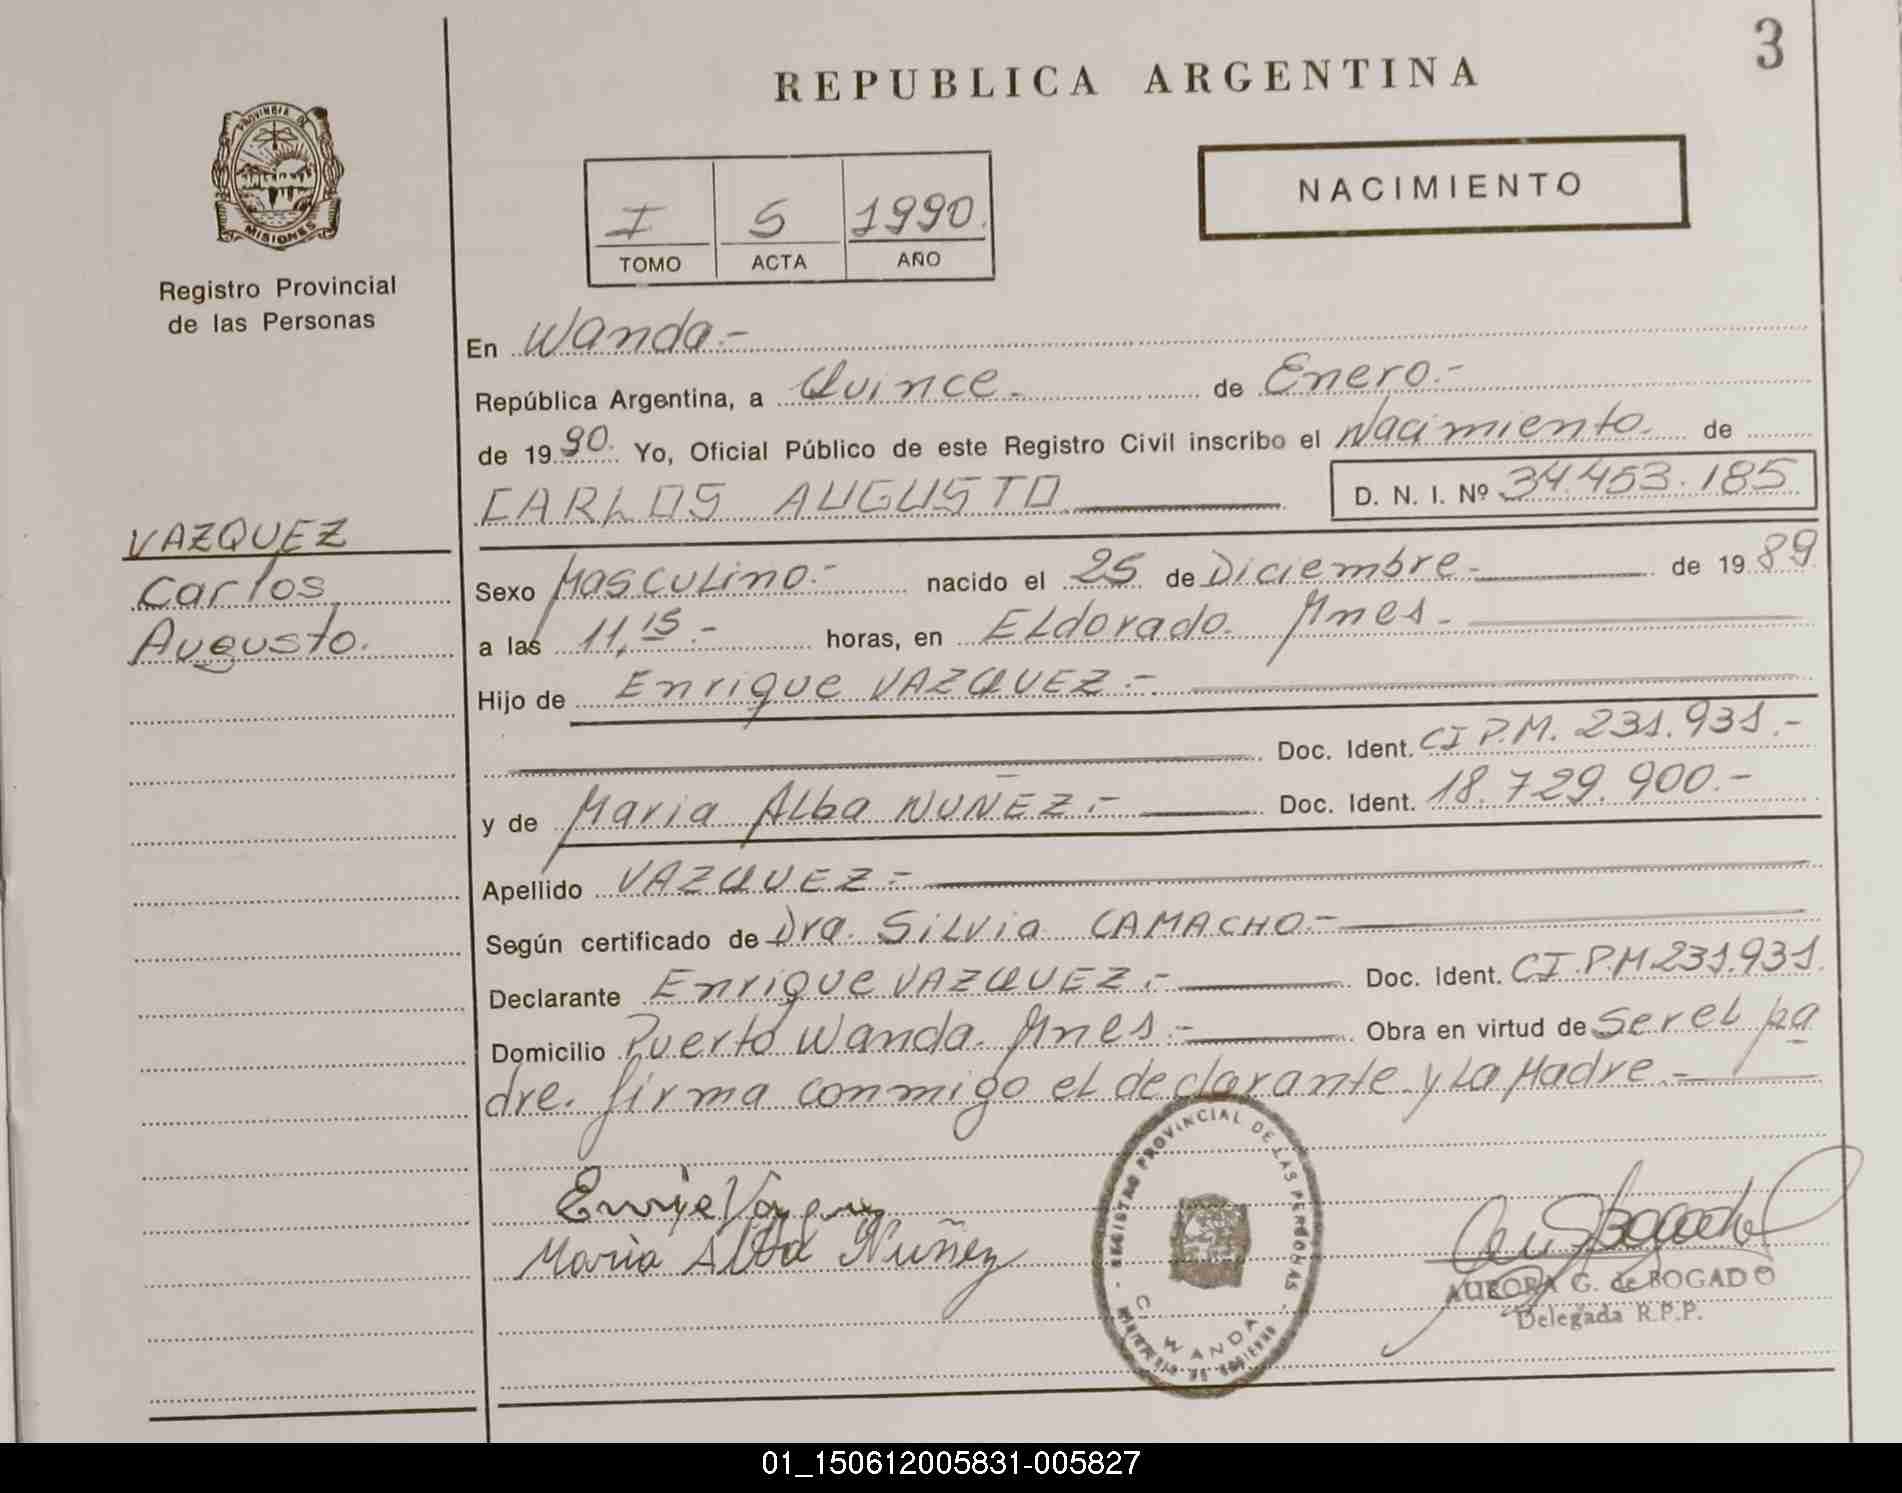 3
REPUBLICA ARGENTINA
PROVINCIA DE
MISIONES
Registro Provincial
de las Personas
I 5 1990.
TOMO ACTA AÑO
NACIMIENTO
En Wanda.-
República Argentina, a Quince. de Enero.-
de 1990. Yo, Oficial Público de este Registro Civil inscribo el Nacimiento. de
CARLOS AUGUSTO D. N. I. Nº 34.453.185
VAZQUEZ
Carlos
Augusto.
Sexo Masculino.- nacido el 25 de Diciembre.- de 1989
a las 11,15.- horas, en Eldorado. Mnes.-
Hijo de Enrique VAZQUEZ.-
Doc. Ident. CI P.M. 231.931.-
y de Maria Alba NUÑEZ.- Doc. Ident. 18.729.900.-
Apellido VAZQUEZ.-
Según certificado de Dra. Silvia CAMACHO.-
Declarante Enrique VAZQUEZ.- Doc. Ident. CI.P.M 231.931.
Domicilio Puerto Wanda. Mnes.- Obra en virtud de ser el pa
dre. firma conmigo el declarante y la Madre.-
REGISTRO PROVINCIAL DE LAS PERSONAS
WANDA
María Alba Nuñez
AURORA G. de BOGADO
Delegada R.P.P.
01_150612005831-005827